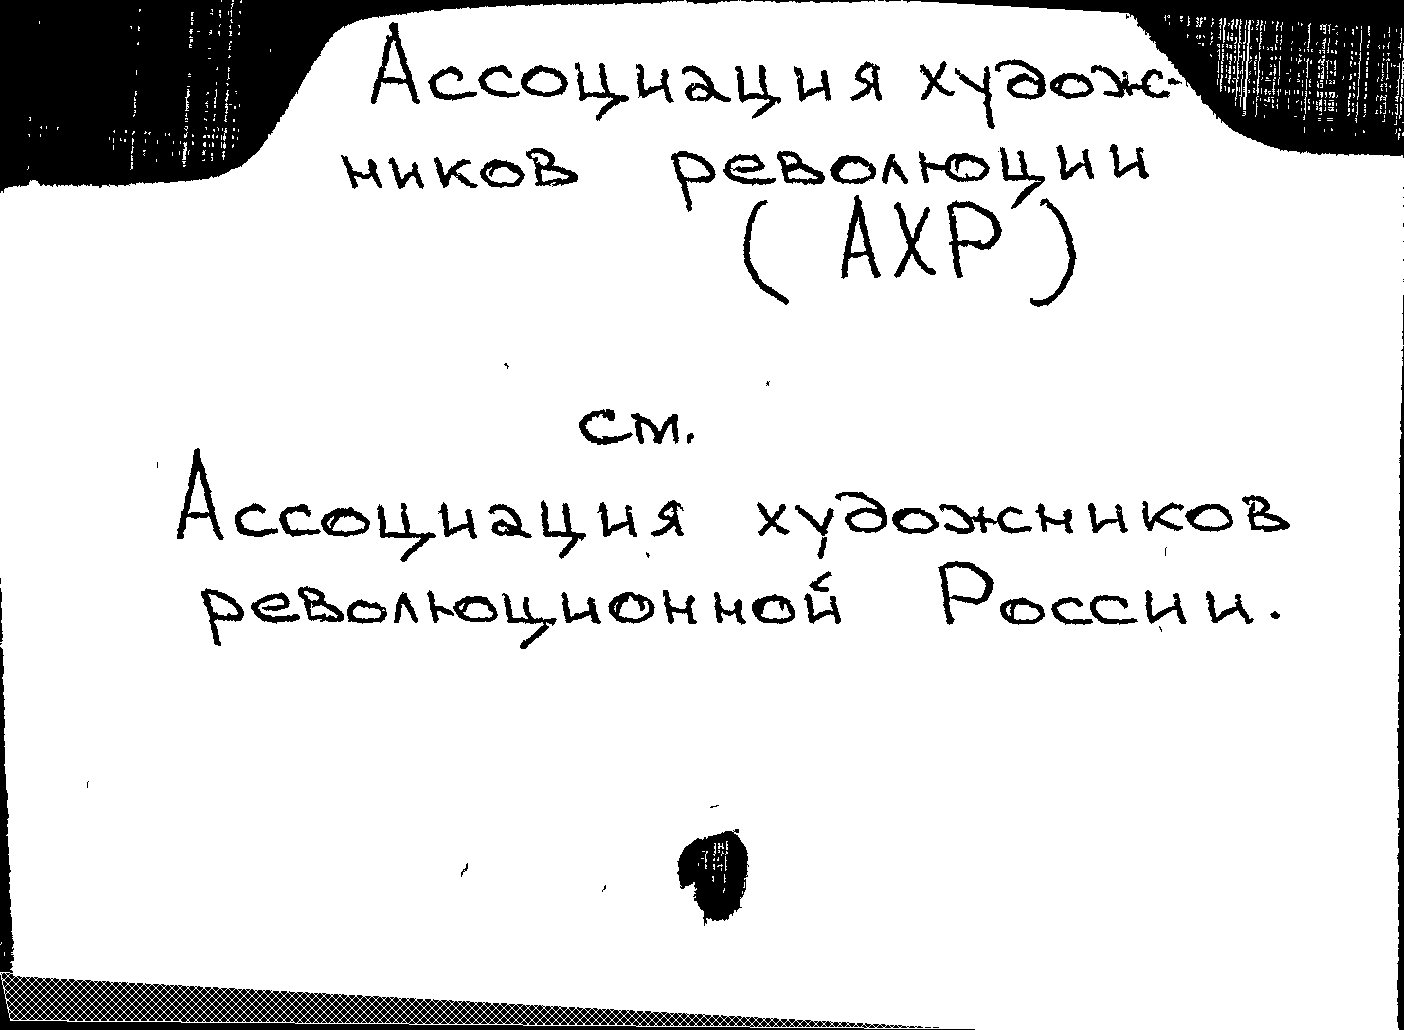 Ассоциация худож-
ников революции
(АХР)
см.
Ассоциация художников
революционной России.